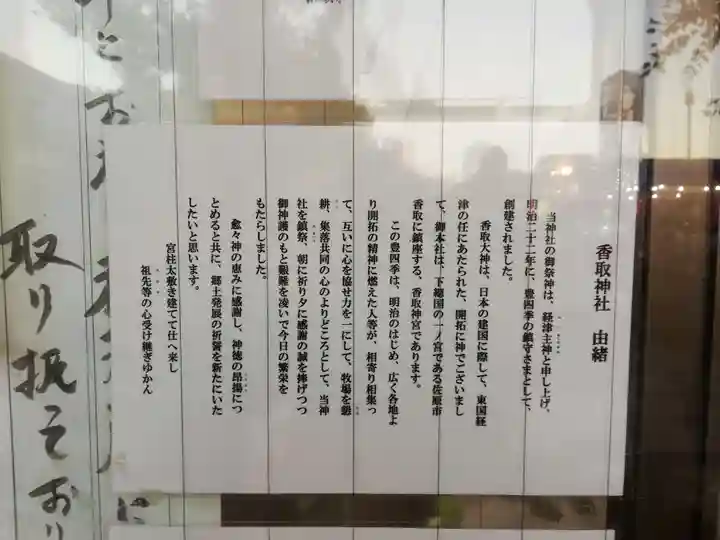 香取神社　由緒
当神社の御祭神は、経津主神と申し上げ、
明治二十二年に、豊四季の鎮守さまとして、
創建されました。
香取大神は、日本の建国に際して、東国経
津の任にあたられた、開拓に神でございまし
て、御本社は、下総国の一ノ宮である佐原市
香取に鎮座する、香取神宮であります。
この豊四季は、明治のはじめ、広く各地よ
り開拓の精神に燃えた人等が、相寄り相集っ
て、互いに心を協せ力を一にして、牧場を懇
耕、集落共同の心のよりどころとして、当神
社を鎮祭、朝に祈り夕に感謝の誠を捧げつつ
御神護のもと艱難を凌いで今日の繁栄を
もたらしました。
愈々神の恵みに感謝し、神徳の昂揚につ
とめると共に、郷土発展の祈誓を新たにいた
したいと思います。
宮柱太敷き建てて仕へ来し
祖先等の心受け継ぎゆかん
取り扱っており